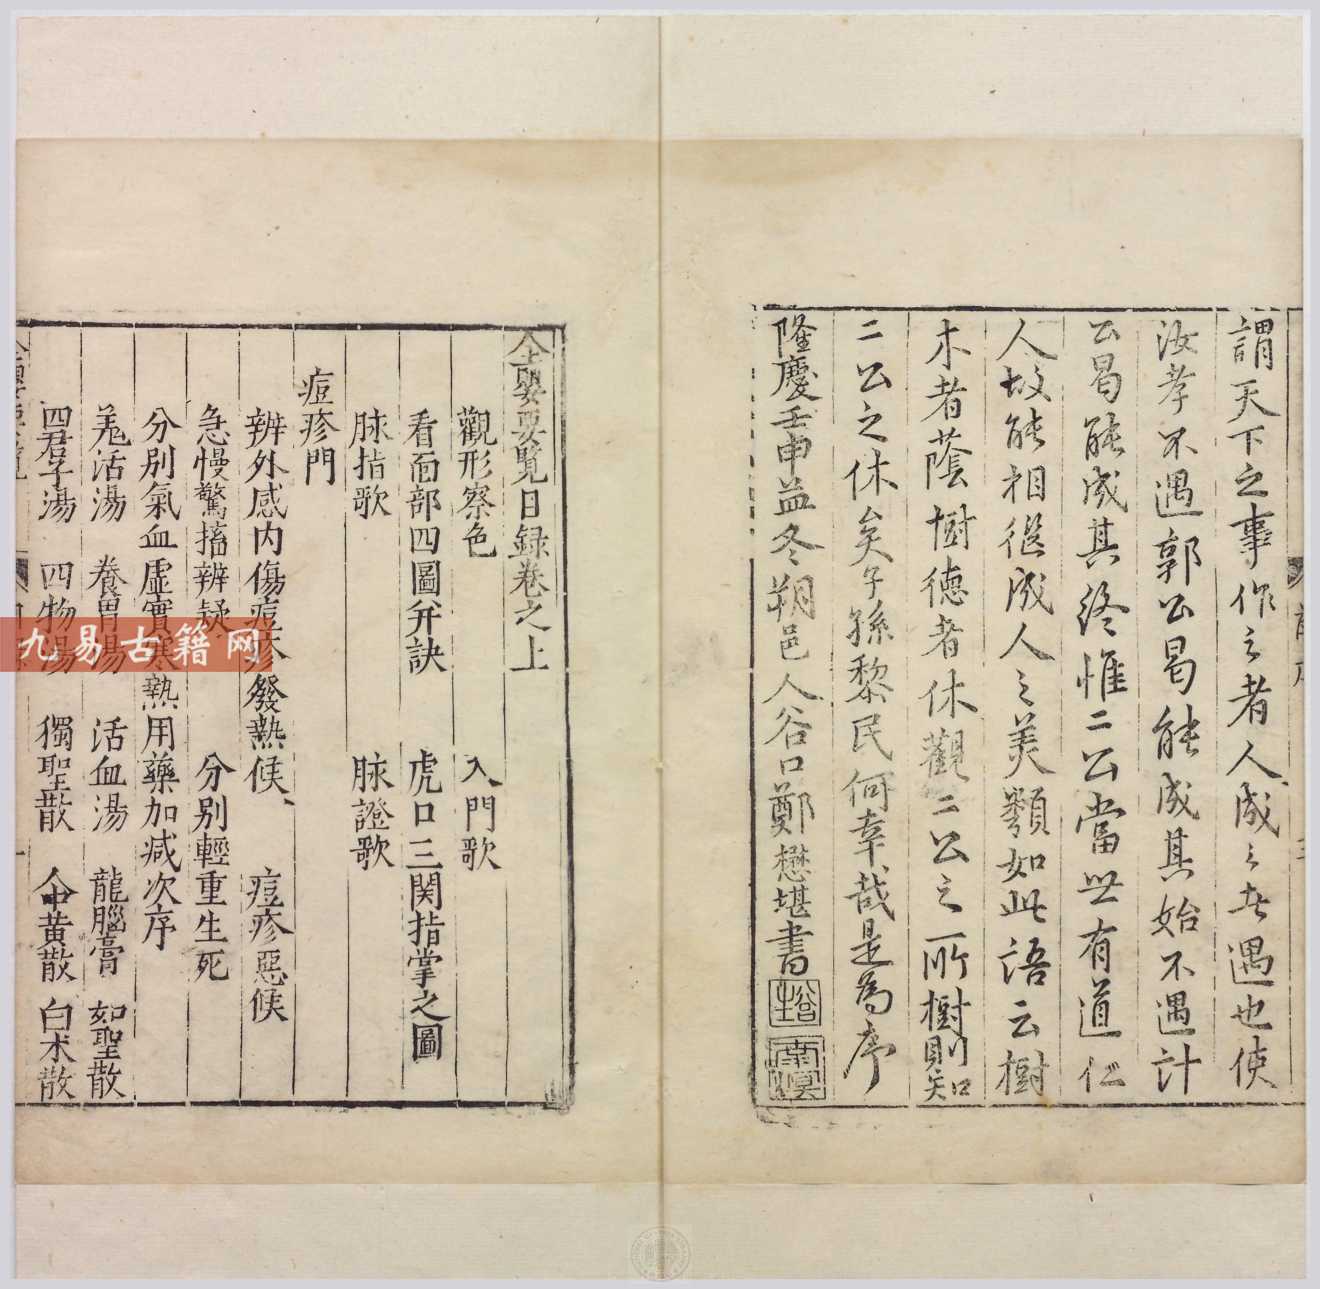 謂天下之事作之者人成之者遇也使
汝孝不遇郭公曷能成其始不遇計
公曷能成其終惟二公當世有道仁
人故能相繼成人之美類如此語云樹
木者蔭樹德者休觀二公之所樹則知
二公之休矣子孫黎民何幸哉是為序
隆慶壬申孟冬朔邑人谷口鄭懋堪書
全嬰要覽目録卷之上
觀形察色 入門歌
看面部四圖并訣 虎口三関指掌之圖
脉指歌 脉證歌
痘疹門
辨外感内傷痘疹發熱候 痘疹惡候
急慢驚搐辨疑 分别輕重生死
分别氣血虛實寒熱用藥加减次序
羗活湯 養胃湯 活血湯 龍腦膏 如聖散
四君子湯 四物湯 獨聖散 人中黄散 白术散
九易古籍网